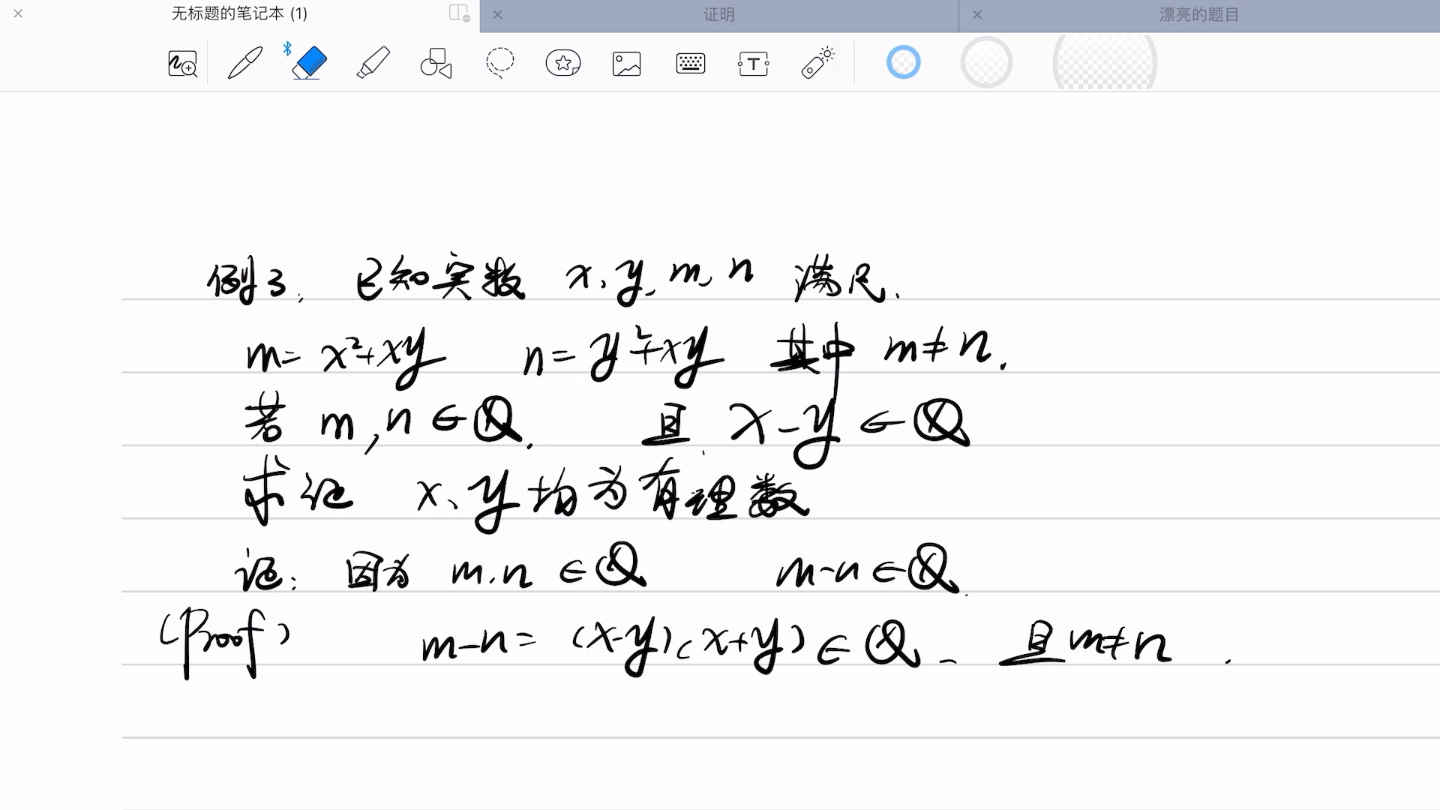 无标题的笔记本 (1) 证明 漂亮的题目
例3. 已知实数 x、y、m、n 满足.
m= x²+xy n= y²+xy 其中 m≠n.
若 m,n∈Q. 且 x-y∈Q
求证 x、y均为有理数
证: 因为 m.n∈Q m-n∈Q.
(Proof) m-n= (x-y)(x+y)∈Q. 且m≠n.